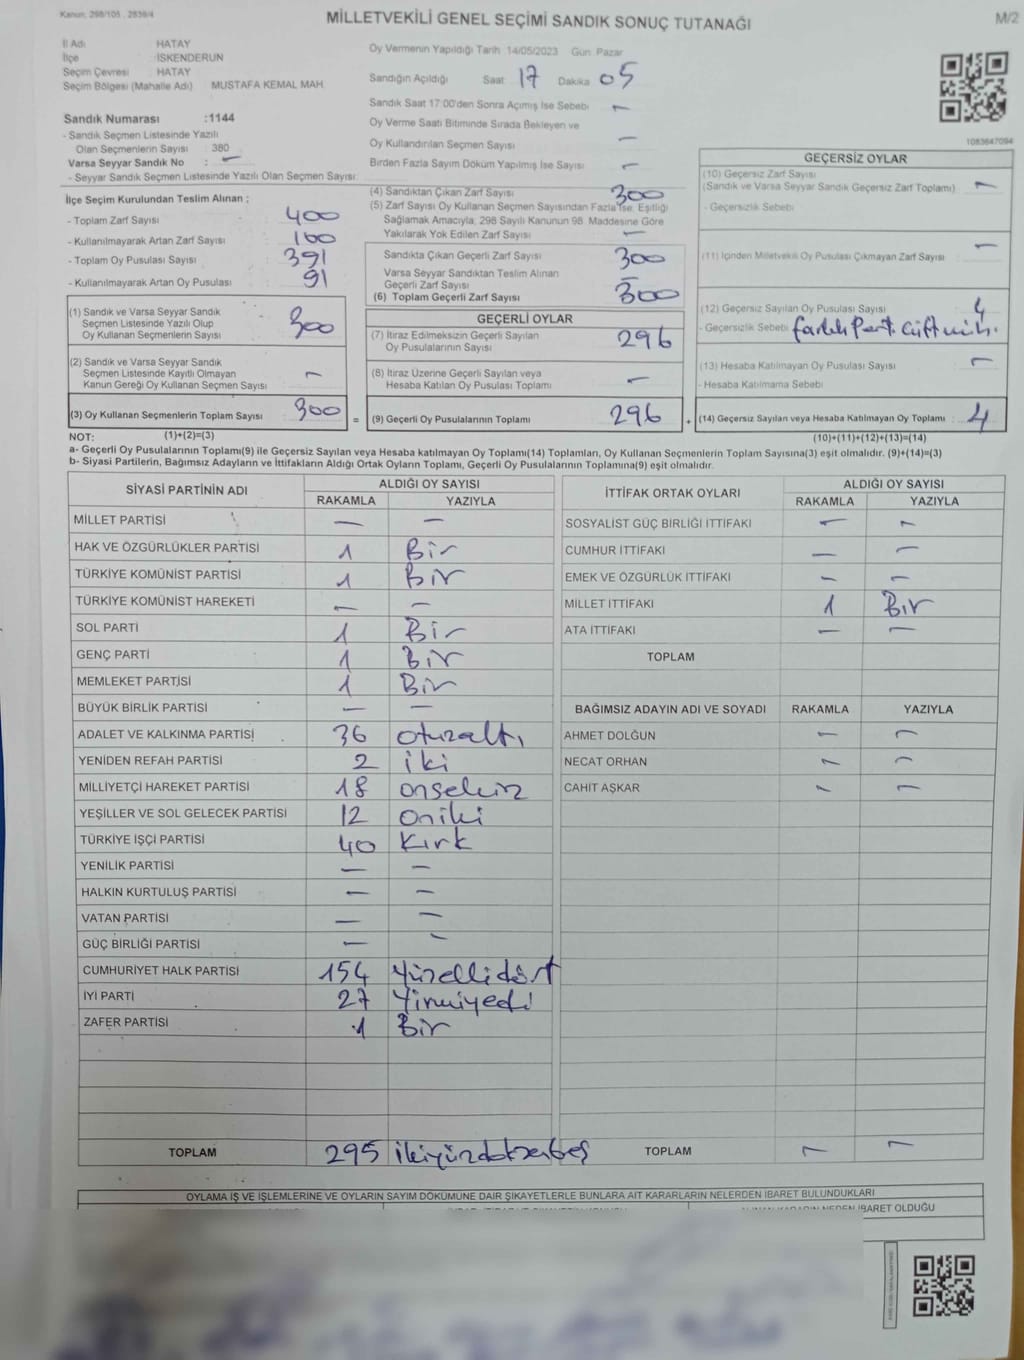 Kanun: 298/105 , 2839/4
MİLLETVEKİLİ GENEL SEÇİMİ SANDIK SONUÇ TUTANAĞI
M/2
İl Adı HATAY
İlçe İSKENDERUN
Seçim Çevresi HATAY
Seçim Bölgesi (Mahalle Adı) MUSTAFA KEMAL MAH.
Sandık Numarası :1144
- Sandık Seçmen Listesinde Yazılı
Olan Seçmenlerin Sayısı : 380
Varsa Seyyar Sandık No : -
- Seyyar Sandık Seçmen Listesinde Yazılı Olan Seçmen Sayısı:
Oy Vermenin Yapıldığı Tarih 14/05/2023 Gün Pazar
Sandığın Açıldığı Saat 17 Dakika 05
Sandık Saat 17:00'den Sonra Açımış İse Sebebi -
Oy Verme Saati Bitiminde Sırada Bekleyen ve
Oy Kullandırılan Seçmen Sayısı -
Birden Fazla Sayım Döküm Yapılmış İse Sayısı -
1083647094
İlçe Seçim Kurulundan Teslim Alınan ;
- Toplam Zarf Sayısı : 400
- Kullanılmayarak Artan Zarf Sayısı : 100
- Toplam Oy Pusulası Sayısı : 391
- Kullanılmayarak Artan Oy Pusulası : 91
(1) Sandık ve Varsa Seyyar Sandık
Seçmen Listesinde Yazılı Olup
Oy Kullanan Seçmenlerin Sayısı : 300
(2) Sandık ve Varsa Seyyar Sandık
Seçmen Listesinde Kayıtlı Olmayan
Kanun Gereği Oy Kullanan Seçmen Sayısı : -
(3) Oy Kullanan Seçmenlerin Toplam Sayısı : 300
(4) Sandıktan Çıkan Zarf Sayısı 300
(5) Zarf Sayısı Oy Kullanan Seçmen Sayısından Fazla ise, Eşitliği
Sağlamak Amacıyla, 298 Sayılı Kanunun 98. Maddesine Göre
Yakılarak Yok Edilen Zarf Sayısı -
Sandıkta Çıkan Geçerli Zarf Sayısı 300
Varsa Seyyar Sandıktan Teslim Alınan
Geçerli Zarf Sayısı -
(6) Toplam Geçerli Zarf Sayısı 300
GEÇERLİ OYLAR
(7) İtiraz Edilmeksizin Geçerli Sayılan
Oy Pusulalarının Sayısı 296
(8) İtiraz Üzerine Geçerli Sayılan veya
Hesaba Katılan Oy Pusulası Toplamı -
= (9) Geçerli Oy Pusulalarının Toplamı 296 +
GEÇERSİZ OYLAR
(10) Geçersiz Zarf Sayısı
(Sandık ve Varsa Seyyar Sandık Geçersiz Zarf Toplamı) -
- Geçersizlik Sebebi :
(11) İçinden Milletvekili Oy Pusulası Çıkmayan Zarf Sayısı : -
(12) Geçersiz Sayılan Oy Pusulası Sayısı : 4
- Geçersizlik Sebebi
(13) Hesaba Katılmayan Oy Pusulası Sayısı : -
- Hesaba Katılmama Sebebi
(14) Geçersiz Sayılan veya Hesaba Katılmayan Oy Toplamı : 4
NOT: (1)+(2)=(3)
(10)+(11)+(12)+(13)=(14)
a- Geçerli Oy Pusulalarının Toplamı(9) ile Geçersiz Sayılan veya Hesaba katılmayan Oy Toplamı(14) Toplamları, Oy Kullanan Seçmenlerin Toplam Sayısına(3) eşit olmalıdır. (9)+(14)=(3)
b- Siyasi Partilerin, Bağımsız Adayların ve İttifakların Aldığı Ortak Oyların Toplamı, Geçerli Oy Pusulalarının Toplamına(9) eşit olmalıdır.
SİYASİ PARTİNİN ADI ALDIĞI OY SAYISI
RAKAMLA YAZIYLA
MİLLET PARTİSİ - -
HAK VE ÖZGÜRLÜKLER PARTİSİ 1 Bir
TÜRKİYE KOMÜNİST PARTİSİ 1 Bir
TÜRKİYE KOMÜNİST HAREKETİ - -
SOL PARTİ 1 Bir
GENÇ PARTİ 1 Bir
MEMLEKET PARTİSİ 1 Bir
BÜYÜK BİRLİK PARTİSİ - -
ADALET VE KALKINMA PARTİSİ 36 otuzaltı
YENİDEN REFAH PARTİSİ 2 iki
MİLLİYETÇİ HAREKET PARTİSİ 18 onsekiz
YEŞİLLER VE SOL GELECEK PARTİSİ 12 oniki
TÜRKİYE İŞÇİ PARTİSİ 40 Kırk
YENİLİK PARTİSİ - -
HALKIN KURTULUŞ PARTİSİ - -
VATAN PARTİSİ - -
GÜÇ BİRLİĞİ PARTİSİ - -
CUMHURİYET HALK PARTİSİ 154 Yüzellidört
İYİ PARTİ 27 Yirmiyedi
ZAFER PARTİSİ 1 Bir
TOPLAM 295 ikiyüzdoksanbeş
İTTİFAK ORTAK OYLARI ALDIĞI OY SAYISI
RAKAMLA YAZIYLA
SOSYALİST GÜÇ BİRLİĞİ İTTİFAKI - -
CUMHUR İTTİFAKI - -
EMEK VE ÖZGÜRLÜK İTTİFAKI - -
MİLLET İTTİFAKI 1 Bir
ATA İTTİFAKI - -
TOPLAM
BAĞIMSIZ ADAYIN ADI VE SOYADI RAKAMLA YAZIYLA
AHMET DOLĞUN - -
NECAT ORHAN - -
CAHİT AŞKAR - -
TOPLAM - -
OYLAMA İŞ VE İŞLEMLERİNE VE OYLARIN SAYIM DÖKÜMÜNE DAİR ŞİKAYETLERLE BUNLARA AİT KARARLARIN NELERDEN İBARET BULUNDUKLARI
İBARET OLDUĞU